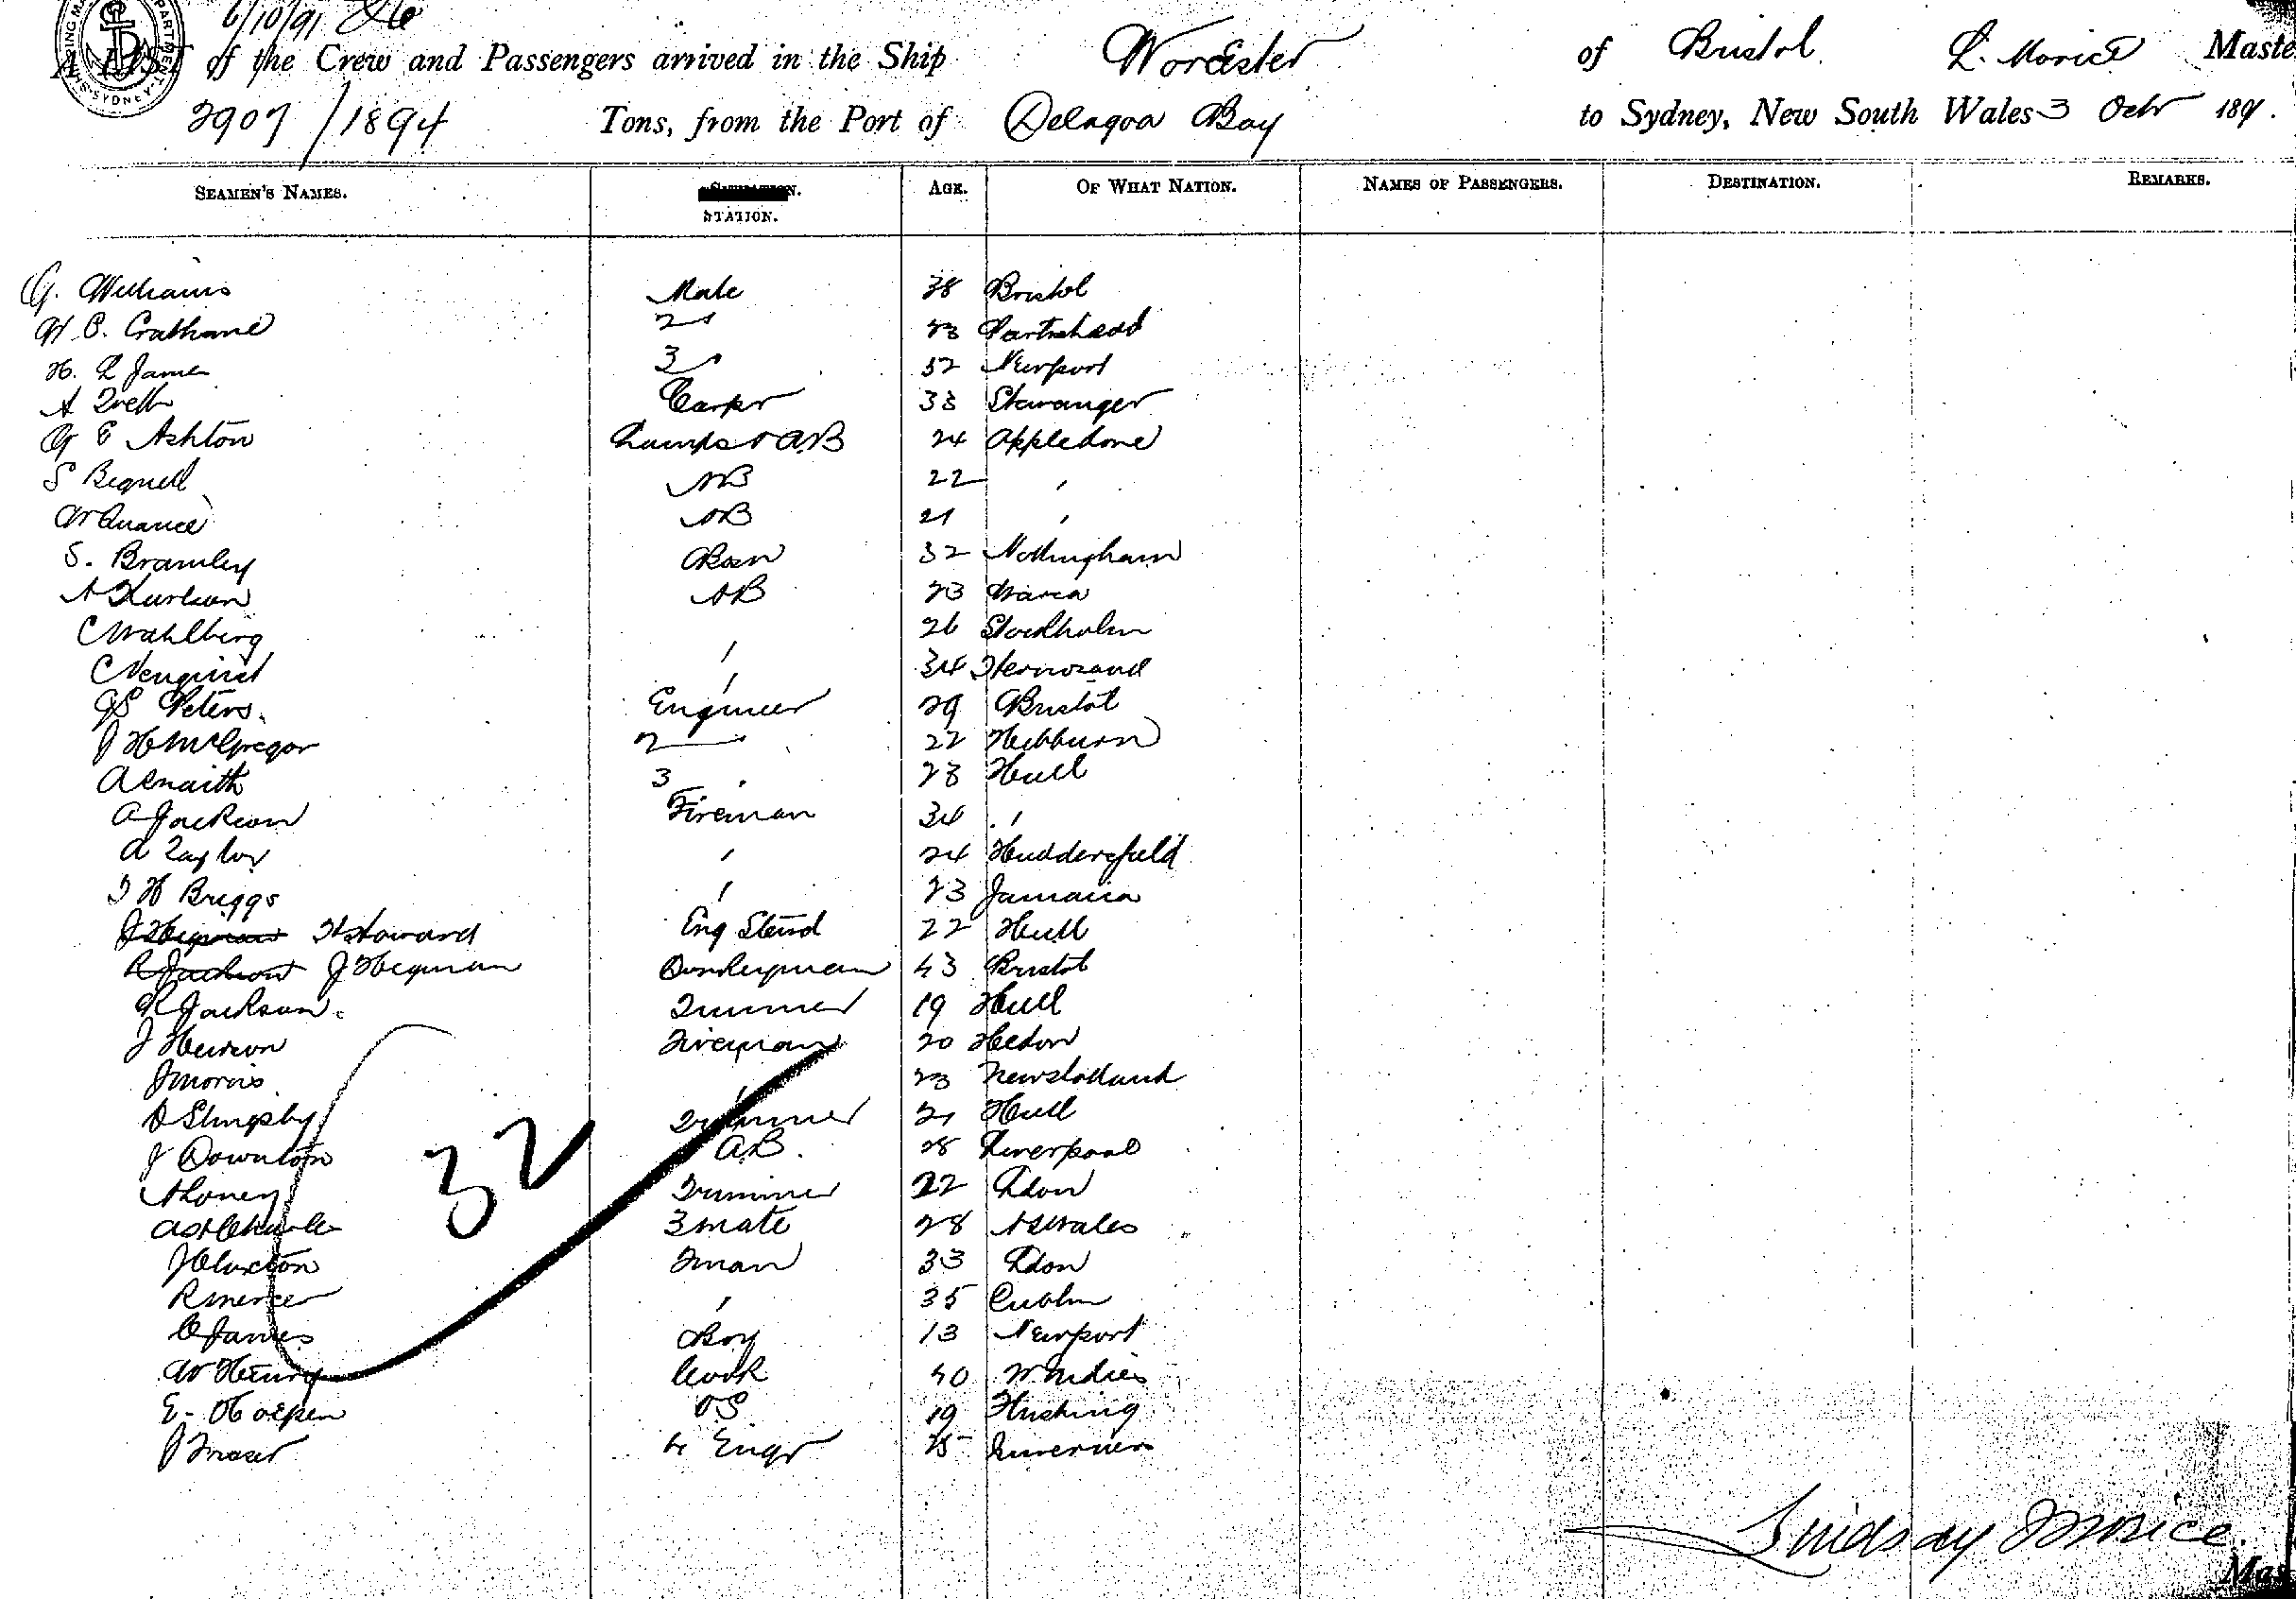 6/10/91
A LIST of the Crew and Passengers arrived in the Ship Worcester of Bristol L. Morice Maste
2907 / 1894 Tons, from the Port of Delagoa Bay to Sydney, New South Wales 3 Octr 189
SEAMEN'S NAMES. STATION. AGE. OF WHAT NATION. NAMES OF PASSENGERS. DESTINATION. REMARKS.
G. Williams Mate 38 Bristol
2 23 Portishead
H. L James 3 32 Newport
A Carpr 33 Stavanger
G E Ashton Lamps & AB 24 Appledore
S Bignell AB 22 "
W Quance AB 21 "
S. Bramley Bosn 32 Nottingham
A Karlson AB 23
C Wahlberg " 26 Stockholm
C Nenquist " 34 Hernosand
Peters. Engineer 29 Bristol
J H McGregor 2 22 Hebburn
A Snaith 3 " 23 Hull
A Jackson Fireman 34 "
A Taylor " 24 Huddersfield
T H Briggs " 23 Jamaica
H Howard Eng Steward 22 Hull
J Hegman Donkeyman 43 Bristol
R Jackson. Trimmer 19 Hull
J Hewson Fireman 20 Hedon
J Morris " 23 New Holland
Slingsby Trimmer 21 Hull
J Downton A.B. 28 Liverpool
A Loney Trimmer 22 Ldon
3 mate 28 N S Wales
J Cluxton Fman 33 Ldon
R Mercer " 35 Dublin
C James Boy 13 Newport
W Henry Cook 40 W Indies
E. OS 19 Flushing
J Fraser 4 Engr 25 Inverness
32
Lindsay Morice
Mas